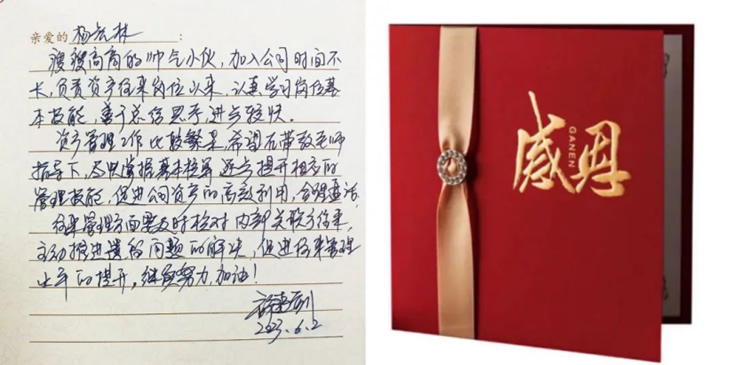 亲爱的 杨宏林
瘦瘦高高的帅气小伙，加入公司时间不
长，负责资产往来岗位以来，认真学习岗位基
本技能，善于总结思考，进步较快。
资产管理工作比较繁杂，希望在带教老师
指导下，尽早掌握基本核算，逐步提升相应的
管理技能，促进公司资产的高效利用，合理盘活。
往来管理方面需及时核对内部关联方往来，
主动推进遗留问题的解决，促进往来管理
水平的提升，继续努力，加油！
2023.6.2
感恩
GANEN